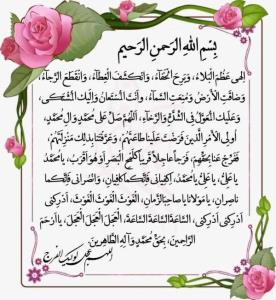 بِسْمِ اللهِ الرَّحْمنِ الرَّحیمِ
اِلهی عَظُمَ الْبَلاءُ، وَبَرِحَ الْخَفاءُ، وَانْکَشَفَ الْغِطاءُ، وَانْقَطَعَ الرَّجاءُ،
وَضاقَتِ الْاَرْضُ وَمُنِعَتِ السَّماءُ، وَاَنْتَ الْمُسْتَعانُ وَاِلَیْکَ الْمُشْتَکی،
وَعَلَیْکَ الْمُعَوَّلُ فِی الشِّدَّةِ وَالرَّخاءِ، اَللّهُمَّ صَلِّ عَلی مُحَمَّدٍ وَآلِ مُحَمَّدٍ،
اُولِی الْاَمْرِ الَّذینَ فَرَضْتَ عَلَیْنا طاعَتَهُمْ، وَعَرَّفْتَنا بِذلِکَ مَنْزِلَتَهُمْ،
فَفَرِّجْ عَنّا بِحَقِّهِمْ فَرَجاً عاجِلاً قَریباً کَلَمْحِ الْبَصَرِ اَوْ هُوَ اَقْرَبُ، یا مُحَمَّدُ
یا عَلِیُّ، یا عَلِیُّ یا مُحَمَّدُ، اِکْفِیانی فَاِنَّکُما کافِیانِ، وَانْصُرانی فَاِنَّکُما
ناصِرانِ، یا مَوْلانا یا صاحِبَ الزَّمانِ، الْغَوْثَ الْغَوْثَ الْغَوْثَ، اَدْرِکْنی
اَدْرِکْنی اَدْرِکْنی، السّاعَةَ السّاعَةَ السّاعَةَ، الْعَجَلَ الْعَجَلَ الْعَجَلَ، یا اَرْحَمَ
الرّاحِمینَ، بِحَقِّ مُحَمَّدٍ وَآلِهِ الطّاهِرینَ.
اللهم عجل لولیک الفرج